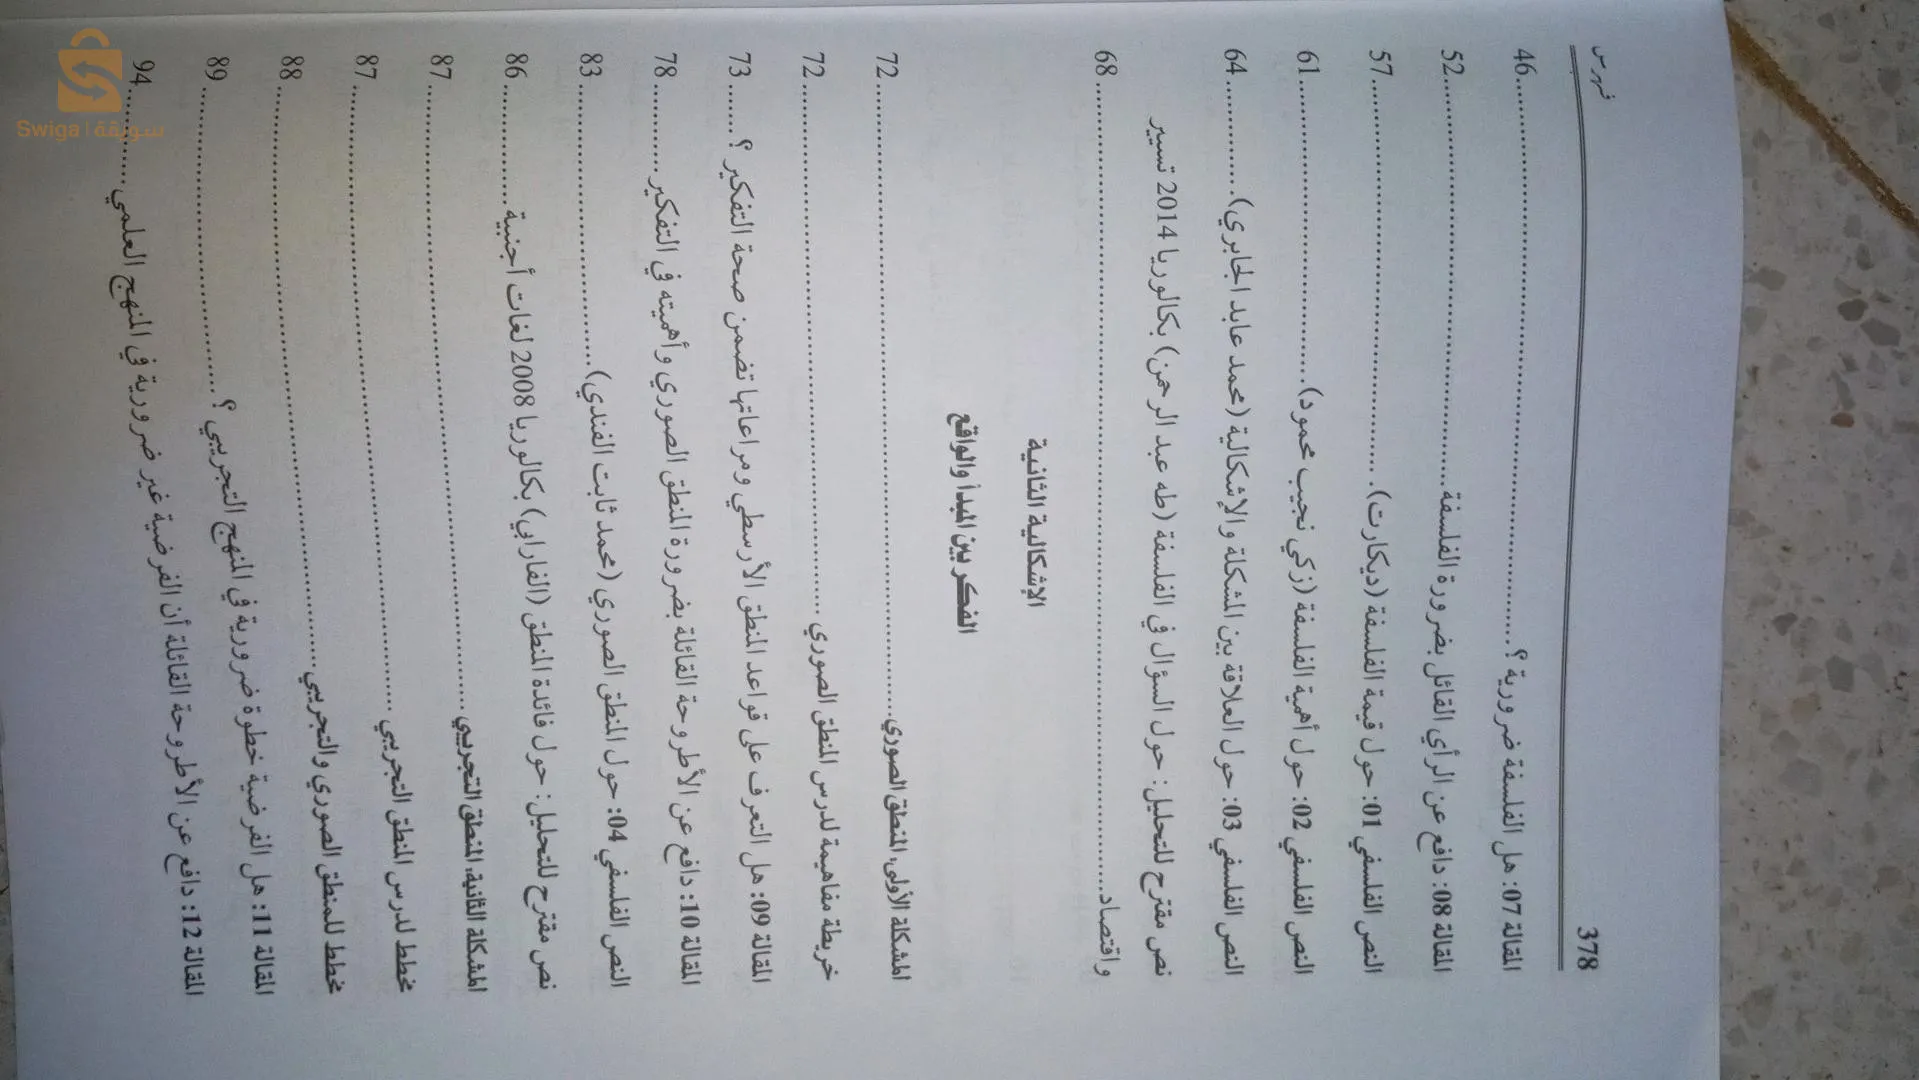 378
فهرس
المقالة 07: هل الفلسفة ضرورية ؟ 46
المقالة 08: دافع عن الرأي القائل بضرورة الفلسفة 52
النص الفلسفي 01: حول قيمة الفلسفة (ديكارت) 57
النص الفلسفي 02: حول أهمية الفلسفة (زكي نجيب محمود) 61
النص الفلسفي 03: حول العلاقة بين المشكلة والإشكالية (محمد عابد الجابري) 64
نص مقترح للتحليل: حول السؤال في الفلسفة (طه عبد الرحمن) بكالوريا 2014 تسيير
واقتصاد 68
الإشكالية الثانية
الفكر بين المبدأ والواقع
المشكلة الأولى: المنطق الصوري 72
خريطة مفاهيمة لدرس المنطق الصوري 72
المقالة 09: هل التعرف على قواعد المنطق الأرسطي ومراعاتها تضمن صحة التفكير ؟ 73
المقالة 10: دافع عن الأطروحة القائلة بضرورة المنطق الصوري وأهميته في التفكير 78
النص الفلسفي 04: حول المنطق الصوري (محمد ثابت الفندي) 83
نص مقترح للتحليل: حول فائدة المنطق (الفارابي) بكالوريا 2008 لغات أجنبية 86
المشكلة الثانية: المنطق التجريبي 87
مخطط لدرس المنطق التجريبي 87
مخطط للمنطق الصوري والتجريبي 88
المقالة 11: هل الفرضية خطوة ضرورية في المنهج التجريبي ؟ 89
المقالة 12: دافع عن الأطروحة القائلة أن الفرضية غير ضرورية في المنهج العلمي 94
Swiga | سويقة